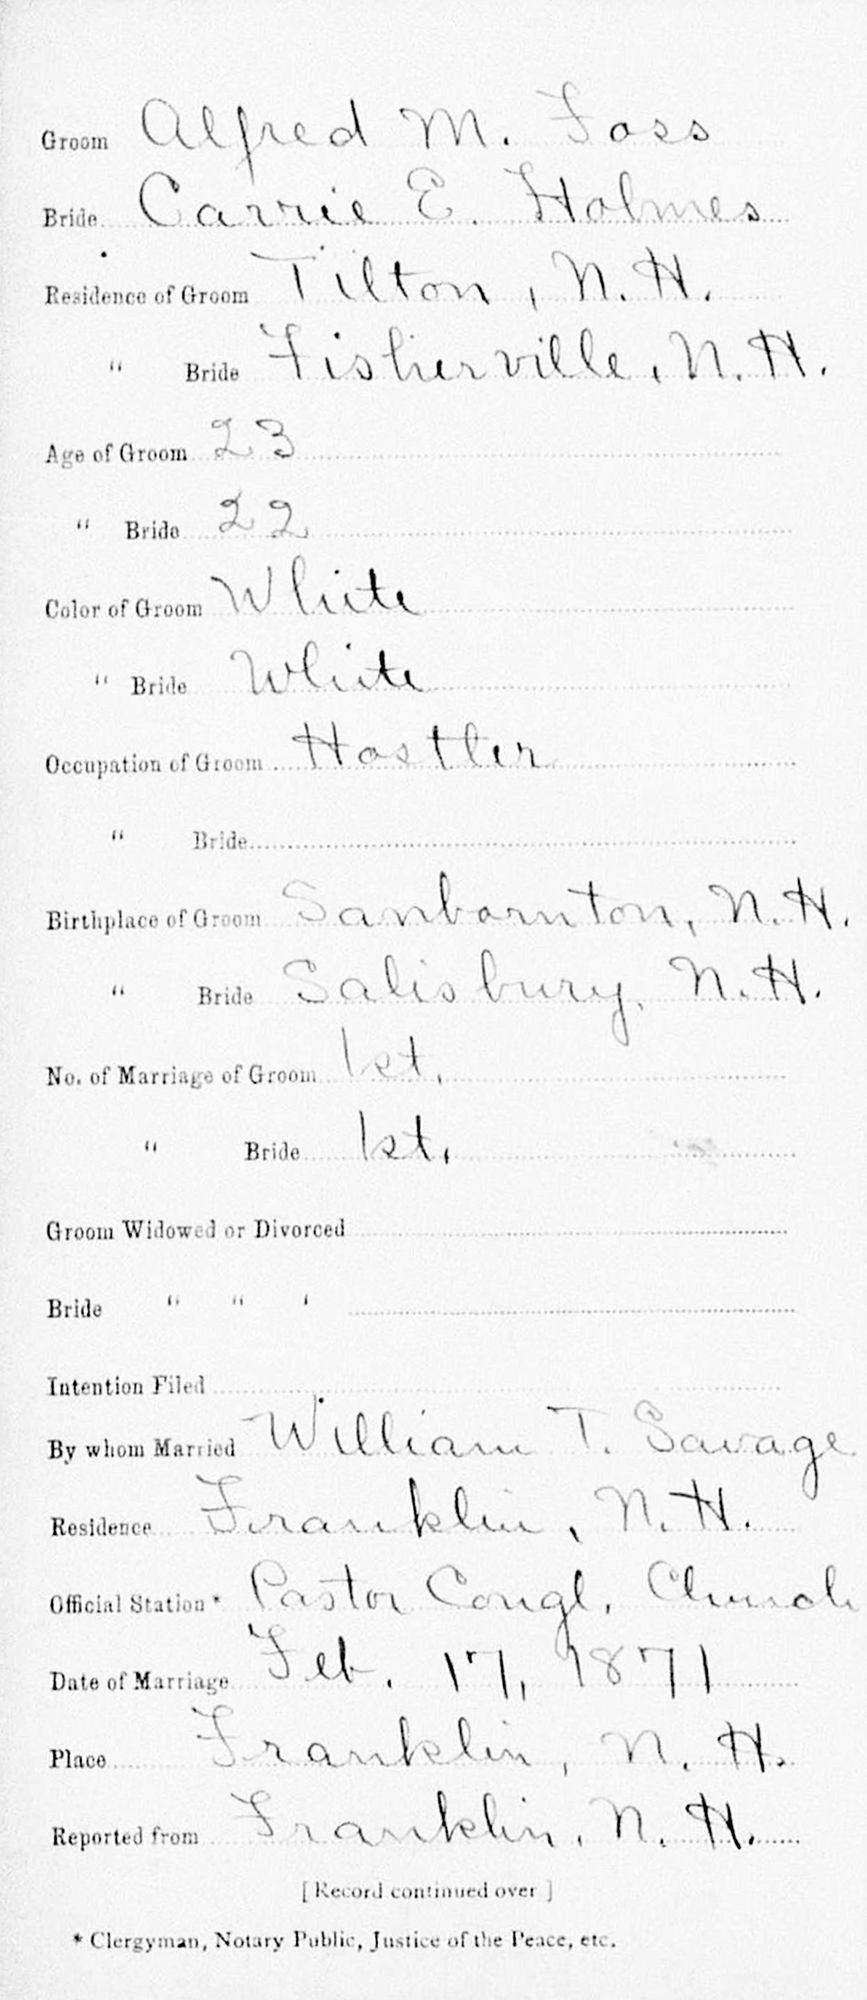 Groom Alfred M. Foss
Bride Carrie E. Holmes
Residence of Groom Tilton, N.H.
" Bride Fisherville, N.H.
Age of Groom 23
" Bride 22
Color of Groom White
" Bride White
Occupation of Groom Hostler
" Bride
Birthplace of Groom Sanbornton, N.H.
" Bride Salisbury, N.H.
No. of Marriage of Groom 1st.
" Bride 1st.
Groom Widowed or Divorced
Bride " " "
Intention Filed
By whom Married William T. Savage
Residence Franklin, N.H.
Official Station* Pastor Congl. Church
Date of Marriage Feb. 17, 1871
Place Franklin, N.H.
Reported from Franklin, N.H.
[Record continued over]
* Clergyman, Notary Public, Justice of the Peace, etc.